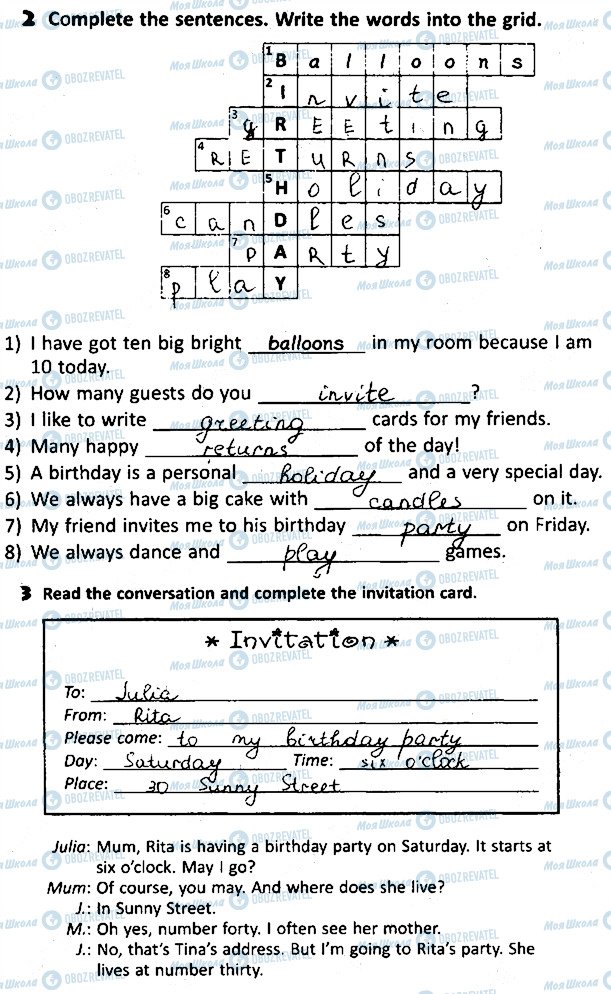 2 Complete the sentences. Write the words into the grid.
1 B a l l o o n s
2 I n v i t e
3 g R E E t i n g
4 R E T u R n s
5 H o l i d a y
6 c a n D l e s
7 p A R t y
8 p l a Y
1) I have got ten big bright balloons in my room because I am
10 today.
2) How many guests do you invite ?
3) I like to write greeting cards for my friends.
4) Many happy returns of the day!
5) A birthday is a personal holiday and a very special day.
6) We always have a big cake with candles on it.
7) My friend invites me to his birthday party on Friday.
8) We always dance and play games.
3 Read the conversation and complete the invitation card.
* Invitation *
To: Julia
From: Rita
Please come: to my birthday party
Day: Saturday Time: six o'clock
Place: 30 Sunny Street
Julia: Mum, Rita is having a birthday party on Saturday. It starts at
six o'clock. May I go?
Mum: Of course, you may. And where does she live?
J.: In Sunny Street.
M.: Oh yes, number forty. I often see her mother.
J.: No, that's Tina's address. But I'm going to Rita's party. She
lives at number thirty.
МояШкола OBOZREVATEL